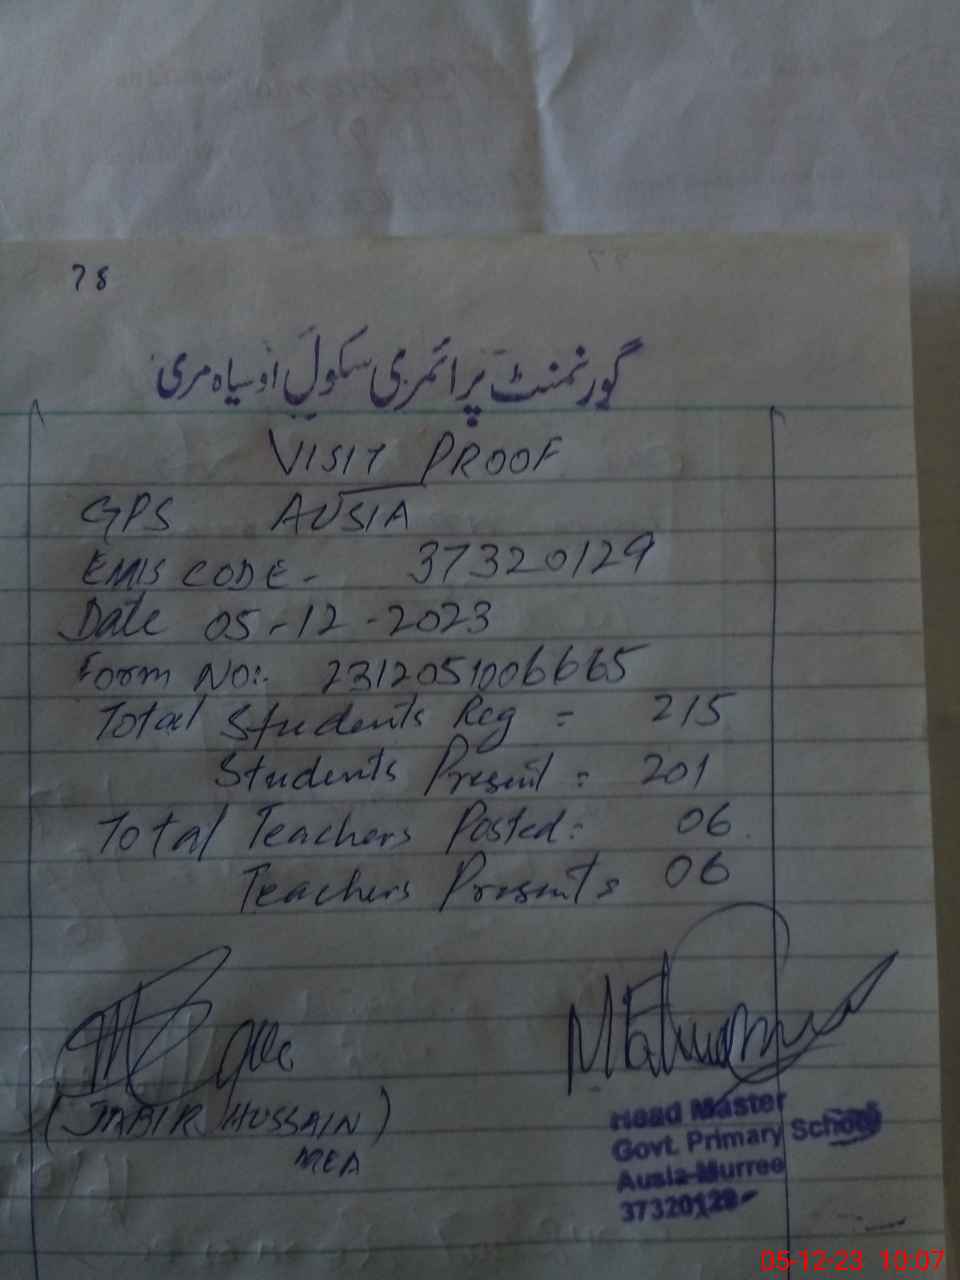 78
گورنمنٹ پرائمری سکول اوسیاہ مری
VISIT PROOF
GPS AUSIA
EMIS CODE- 37320129
Date 05-12-2023
Form No:- 2312051006665
Total Students Reg = 215
Students Present = 201
Total Teachers Posted: 06
Teachers Presents 06
(JABIR HUSSAIN)
MEA
Head Master
Govt. Primary School
Ausia Murree
37320129
05-12-23 10:07